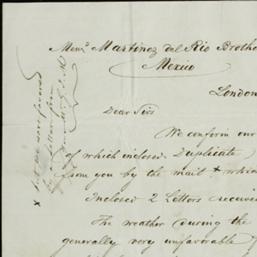 Mess.rs Martinez del Rio Brothe
Mexico
London
Dear Sirs
We confirm our
of which inclosed Duplicate
from you by the mail & which
Inclosed 2 Letters receive
The weather during the
generally very unfavorable
x but we were favored